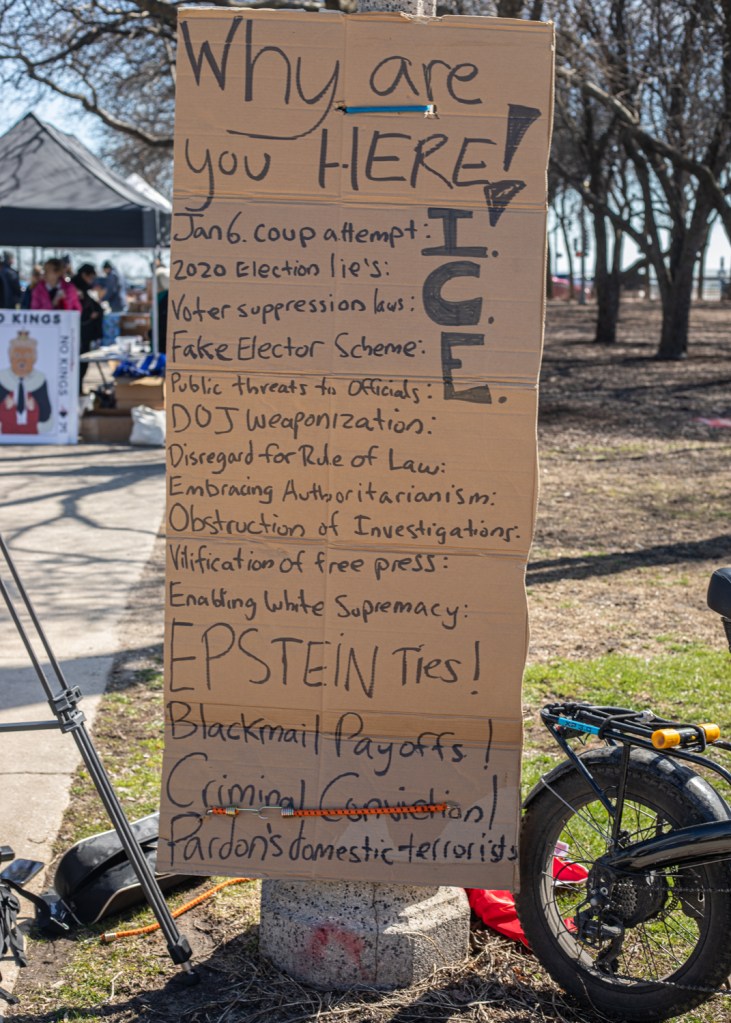 Why are
you HERE!
Jan 6. coup attempt:
2020 Election lie's:
Voter suppression laws:
Fake Elector Scheme:
I.C.E.
Public threats to Officials:
DOJ Weaponization:
Disregard for Rule of Law:
Embracing Authoritarianism:
Obstruction of Investigations:
Vilification of free press:
Enabling White Supremacy:
EPSTEIN Ties!
Blackmail Payoffs!
Criminal Conviction!
Pardon's domestic terrorists
KINGS
NO KINGS